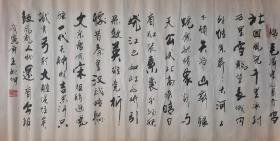 北国風光千里冰封
万里雪飘望长城内
外惟余莽莽大河上
下顿失滔滔山舞银
蛇原驰蜡象欲与
天公试比高须晴日
看红装素裹分外妖
娆江山如此多娇引
无数英雄竞折
腰惜秦皇汉武略输
文采唐宗宋祖稍逊
风骚一代天骄成吉思汗只
识弯弓射大雕俱往矣
数风流人物还看今朝